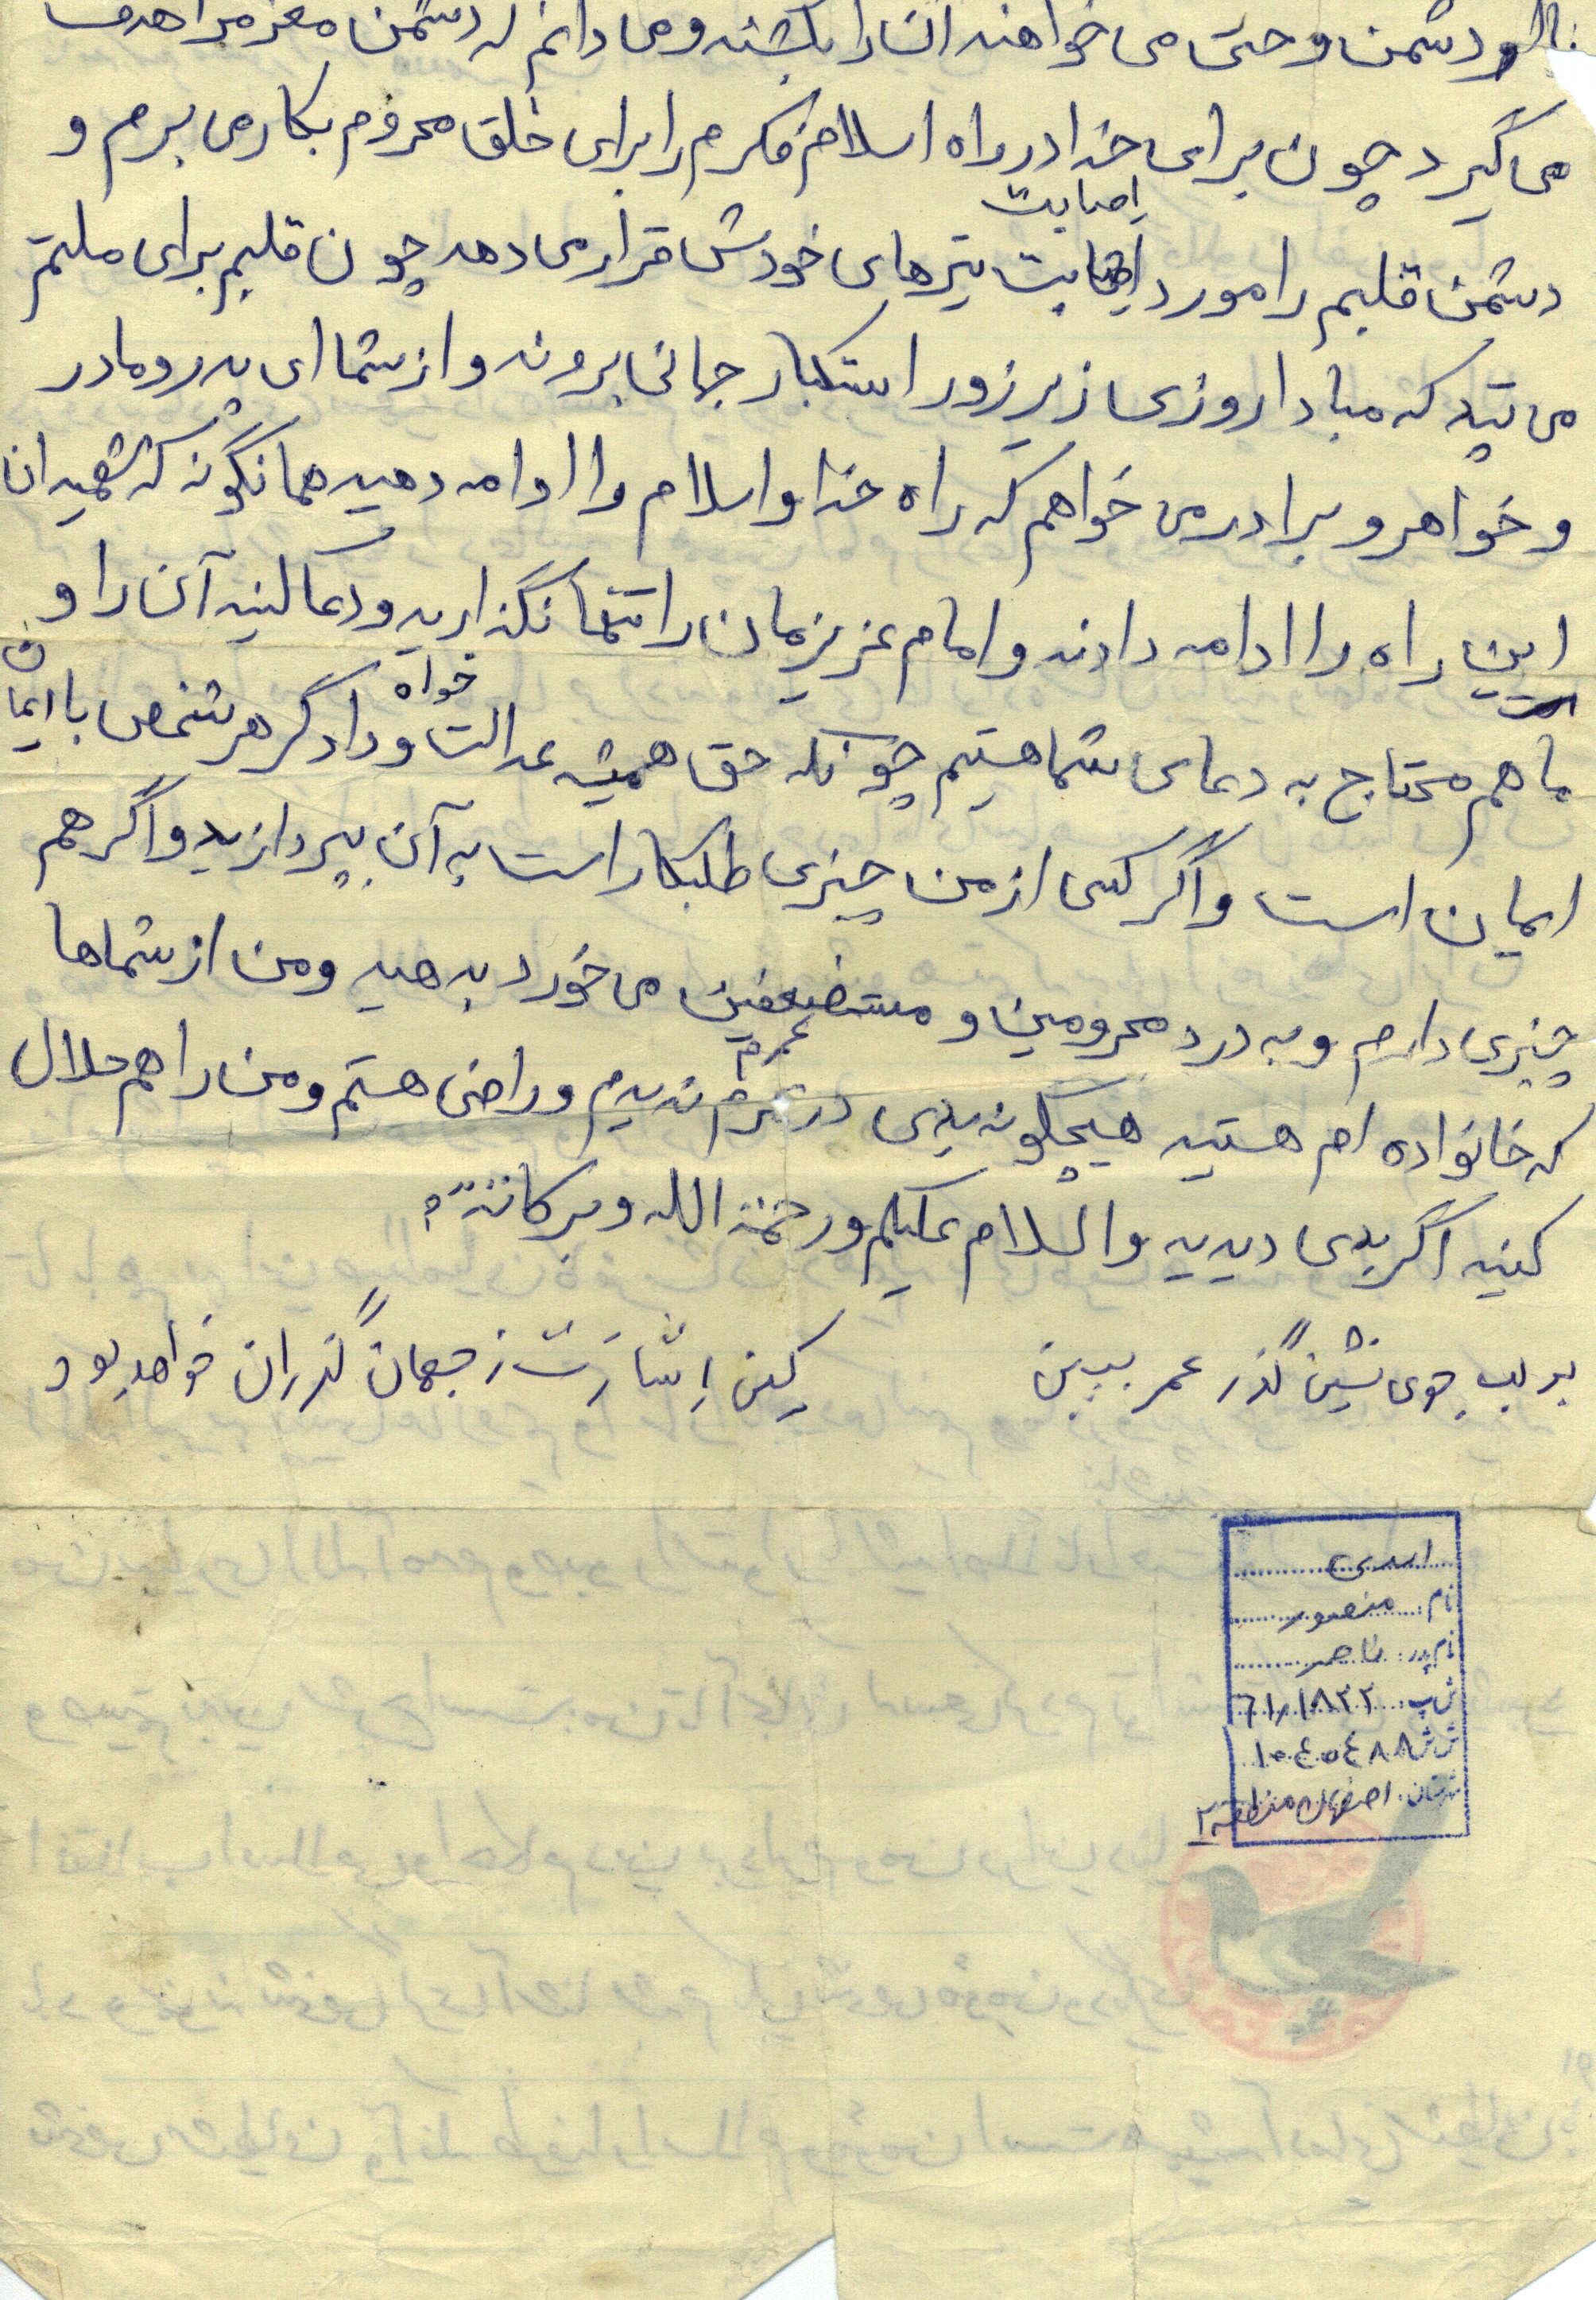 دشمن و حتی می خواهند آنان را بکشند و می دانم که دشمن مغزم را هدف
می گیرد چون برای خدا در راه اسلام فکرم را برای خلق محروم بکار می برم و
دشمن قلبم را مورد اصابت تیرهای خودش قرار می دهد چون قلبم برای ملتم
اصابت
می تپد که مبادا روزی زیر زور استکبار جهانی بروند و از شما ای پدر و مادر
و خواهر و برادر می خواهم که راه خدا و اسلام را ادامه دهید همانگونه که شهیدان
این راه را ادامه دادند و امام عزیزمان را تنها نگذارید و دعا کنید آن را و
ما هم محتاج به دعای شما هستیم چونکه حق همیشه عدالت خواه و دادگر هر شخص با ایمان
ایمان است و اگر کسی از من چیزی طلبکار است به آن بپردازید و اگر هم
چیزی دارم و به درد محرومین و مستضعفین می خورد بدهید و من از شماها
که خانواده ام هستید هیچگونه بدی در عمرم ندیدم و راضی هستم و من را هم حلال
عمرم
کنید اگر بدی دیدید والسلام علیکم و رحمة الله و برکاته
بر لب جوی نشین گذر عمر ببین کین اشارت ز جهان گذران خواهد بود
اسدی
نام: منصور
نام پدر: ناصر
ش پ: ٦١/١٨٢٢
ش ش ١٠٤٠٤٨٨
اصفهان منطقه ٢